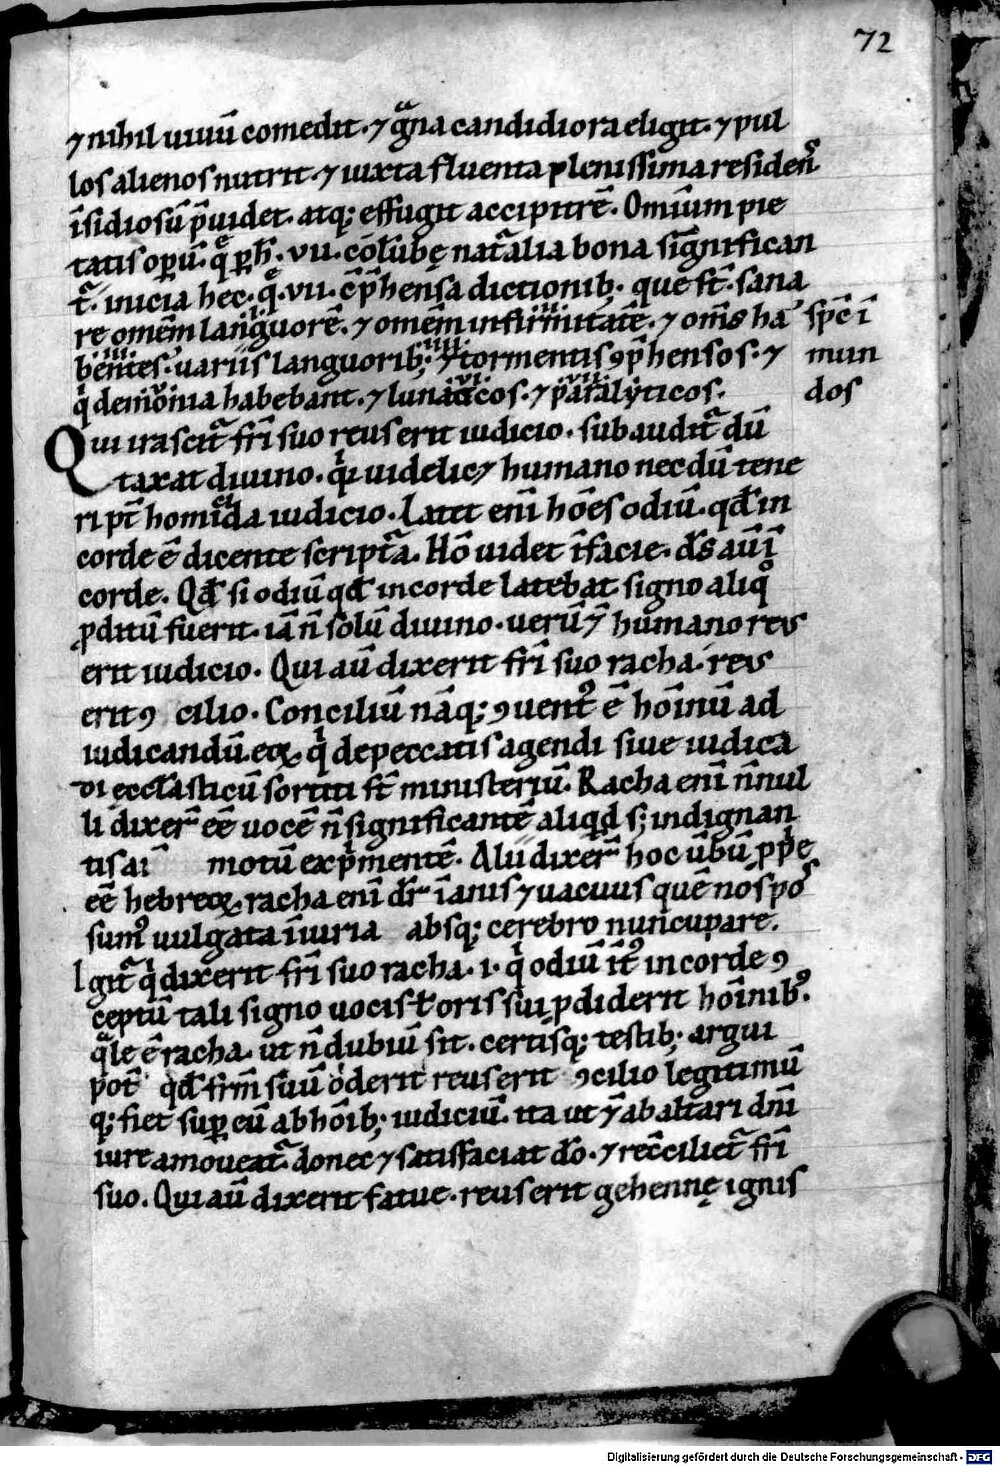 72
⁊ nihil uiuū comedit · ⁊ gͣna candidiora eligit · ⁊ pul
los alienos nutrit · ⁊ iuxta fluenta plenissima residen̄
īsidiosū p̄uidet · atq; effugit accipitrē · Omīum pie
tatis oꝑū · q̄ ꝑ h̄ · vii · colūbę natͣalia bona significan
tͣ · inicia hec · q̄ · vii · cōp̄hensa dictionib; · que st̄ · sana
re omēm languorē · ⁊ omēm infirmitatē · ⁊ om̄s ha
spē ī
bentes · uariis languorib; · ⁊ tormentis ꝯp̄hensos · ⁊
mun
qͥ demonia habebant · ⁊ lunaticos · ⁊ paralyticos ·
dos
Qui irascitͣ fr̄i suo reus erit iudicio · subauditͣ dū
taxat diuino · qͥ uidelic; humano nec dū tene
ri pt̄ homicida iudicio · Latet eni hōēs odiū · qđ in
corde ē dicente scriptͣa · Hō uidet ī facie · d̄s aū ī
corde · Qđ si odiū qđ in corde latebat signo aliqͦ
ꝓditū fuerit · iā n̄ solū diuino · uerū ⁊ humano reus
erit iudicio · Qui aū dixerit fr̄i suo racha · reus
erit ꝯ cilio · Conciliū nāq; ꝯuent᷒ ē hoīnū ad
iudicandū eoꝝ qͥ de peccatis agendi siue iudica
di ecclasticū sortiti st̄ ministeriū · Racha eni n̄nul
li dixer̄ eē uocē n̄ significantē aliqͥd s; indignan
tis ai motū expͥmentē · Alii dixer̄ hoc ūbū ꝓpͥe
eē hebreoꝝ · racha eni dr̄ īanis ⁊ uacuus quē nos pos
sum᷒ uulgata īiuria absq; cerebro nuncupare ·
Igitͣ qͥ dixerit fr̄i suo racha · i · qͥ odiū īt᷒ in corde ꝯ
ceptū tali signo uocis t̄ oris sui ꝓdiderit hoīnib᷒ ·
qͣle ē racha · ut n̄ dubiū sit · certisq; testib; argui
pot̄ qđ frm̄ suū oderit reus erit ꝯcilio legitimū
q; fiet suꝑ eū ab hōib; iudiciū · ita ut ⁊ ab altari dn̄i
iure amoueatͣ · donec ⁊ satisfaciat do · ⁊ recōcilietͣ fr̄i
suo · Qui aū dixerit fatue · reus erit gehennę ignis
Digitalisierung gefördert durch die Deutsche Forschungsgemeinschaft - DFG